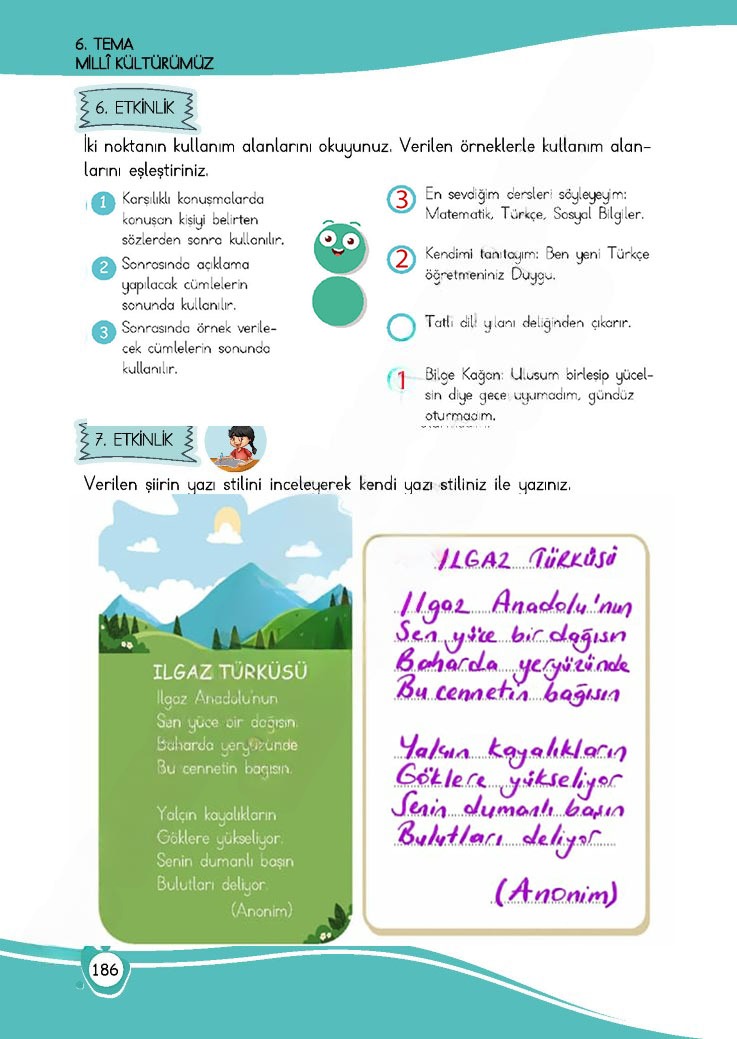 6. TEMA
MİLLÎ KÜLTÜRÜMÜZ
6. ETKİNLİK
İki noktanın kullanım alanlarını okuyunuz. Verilen örneklerle kullanım alan-
larını eşleştiriniz.
1 Karşılıklı konuşmalarda
konuşan kişiyi belirten
sözlerden sonra kullanılır.
2 Sonrasında açıklama
yapılacak cümlelerin
sonunda kullanılır.
3 Sonrasında örnek verile-
cek cümlelerin sonunda
kullanılır.
3 En sevdiğim dersleri söyleyeyim:
Matematik, Türkçe, Sosyal Bilgiler.
2 Kendimi tanıtayım: Ben yeni Türkçe
öğretmeniniz Duygu.
Tatlı dil yılanı deliğinden çıkarır.
1 Bilge Kağan: Ulusum birleşip yücel-
sin diye gece uyumadım, gündüz
oturmadım.
7. ETKİNLİK
Verilen şiirin yazı stilini inceleyerek kendi yazı stiliniz ile yazınız.
ILGAZ TÜRKÜSÜ
Ilgaz Anadolu'nun
Sen yüce bir dağısın.
Baharda yeryüzünde
Bu cennetin bağısın.
Yalçın kayalıkların
Göklere yükseliyor.
Senin dumanlı başın
Bulutları deliyor.
(Anonim)
ILGAZ TÜRKÜSÜ
Ilgaz Anadolu'nun
Sen yüce bir dağısın
Baharda yeryüzünde
Bu cennetin bağısın
Yalçın kayalıkların
Göklere yükseliyor
Senin dumanlı başın
Bulutları deliyor
(Anonim)
186